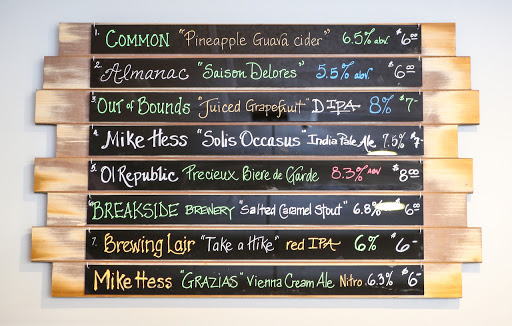 1. COMMON "Pineapple Guava cider" 6.5% abv. $6.00
2. Almanac "Saison Delores" 5.5% abv. $6.00
3. Out of Bounds "Juiced Grapefruit" DIPA 8% $7-
4. Mike Hess "Solis Occasus" India Pale Ale 7.5% $7-
5. Ol Republic Precieux Biere de Garde 8.3% ABV $8.00
6. BREAKSIDE BREWERY "Salted Caramel Stout" 6.8% $6.00
7. Brewing Lair "Take a Hike" red IPA 6% $6-
8. Mike Hess "GRAZIAS" Vienna Cream Ale Nitro 6.3% $6-